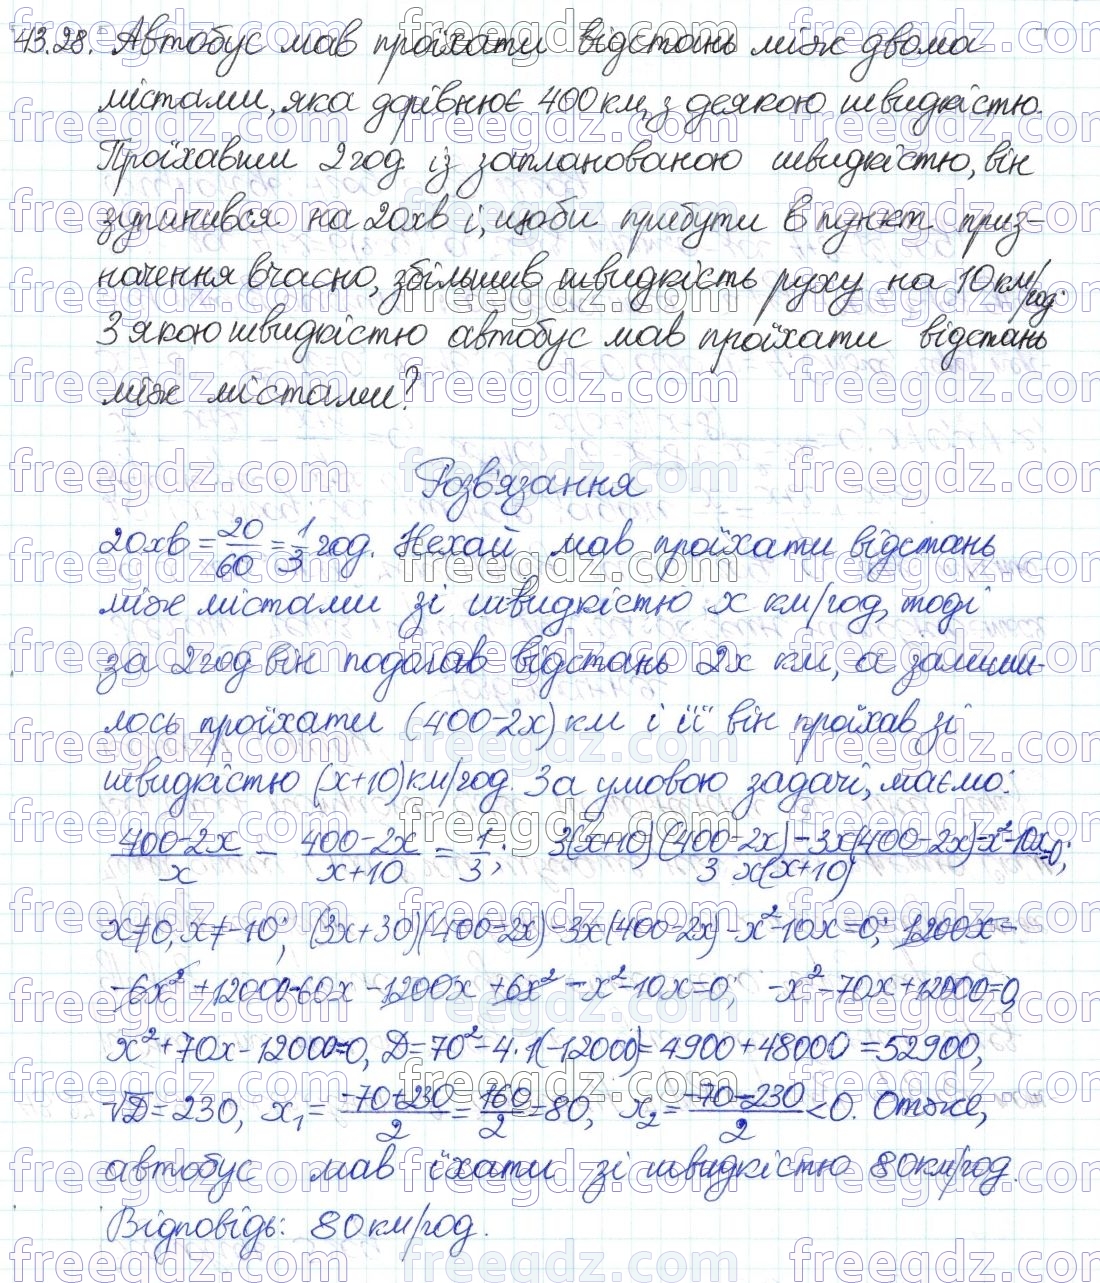 43.28. Автобус мав проїхати відстань між двома
містами, яка дорівнює 400 км, з деякою швидкістю.
Проїхавши 2 год із запланованою швидкістю, він
зупинився на 20 хв і, щоби прибути в пункт приз-
начення вчасно, збільшив швидкість руху на 10 км/год.
З якою швидкістю автобус мав проїхати відстань
між містами?
Розв'язання
20 хв = 20/60 = 1/3 год. Нехай мав проїхати відстань
між містами зі швидкістю x км/год, тоді
за 2 год він подолав відстань 2x км, а залиши-
лось проїхати (400-2x) км і її він проїхав зі
швидкістю (x+10) км/год. За умовою задачі, маємо:
(400-2x)/x - (400-2x)/(x+10) = 1/3; (3(x+10)(400-2x)-3x(400-2x)-x²-10x)/(3x(x+10))=0;
x≠0, x≠-10; (3x+30)(400-2x)-3x(400-2x)-x²-10x=0; 1200x-
-6x²+12000-60x-1200x+6x²-x²-10x=0; -x²-70x+12000=0,
x²+70x-12000=0, D=70²-4·1(-12000)=4900+48000=52900,
√D=230, x₁=(-70+230)/2=160/2=80, x₂=(-70-230)/2<0. Отже,
автобус мав їхати зі швидкістю 80 км/год.
Відповідь: 80 км/год.
freegdz.com